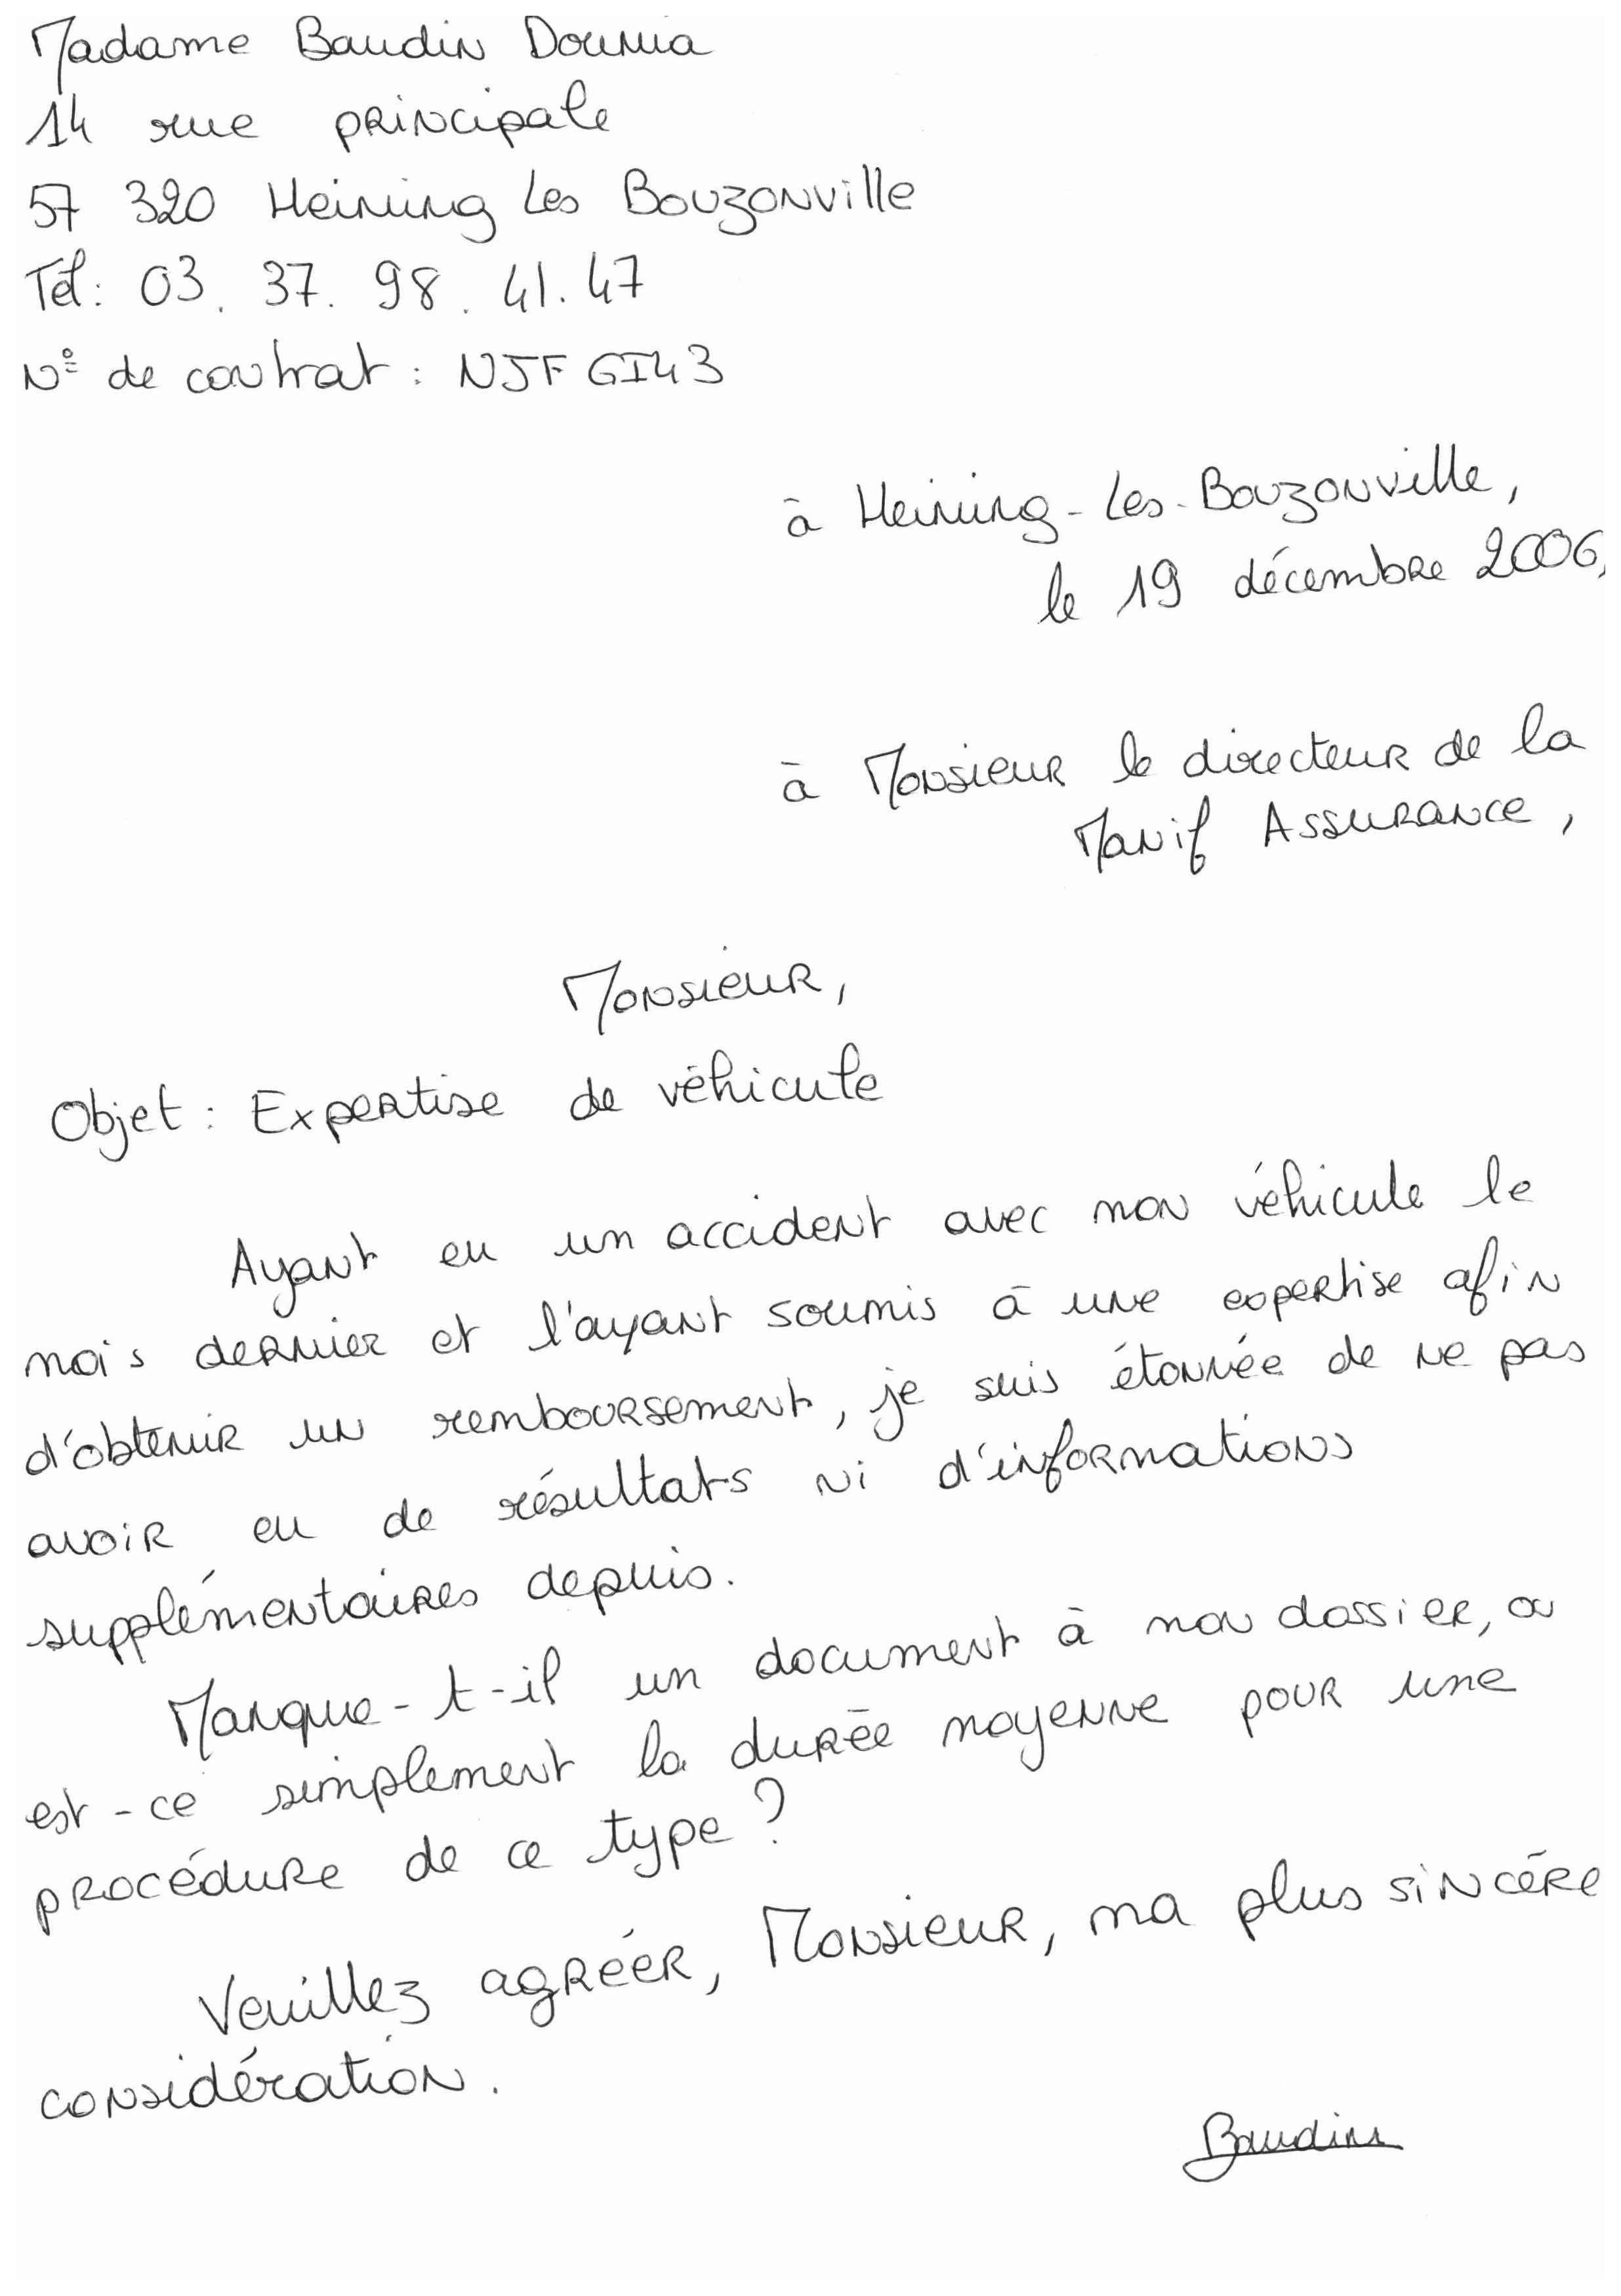 Madame Baudin Dounia
14 rue principale
57 320 Heining Les Bouzonville
Tél : 03. 37. 98. 41. 47
N° de contrat : NJFGI43
à Heining-Les-Bouzonville,
le 19 décembre 2006,
à Monsieur le directeur de la
Manif Assurance,
Monsieur,
Objet : Expertise de véhicule
Ayant eu un accident avec mon véhicule le
mois dernier et l'ayant soumis à une expertise afin
d'obtenir un remboursement, je suis étonnée de ne pas
avoir eu de résultats ni d'informations
supplémentaires depuis.
Manque-t-il un document à mon dossier, ou
est-ce simplement la durée moyenne pour une
procédure de ce type ?
Veuillez agréer, Monsieur, ma plus sincère
considération.
Baudin